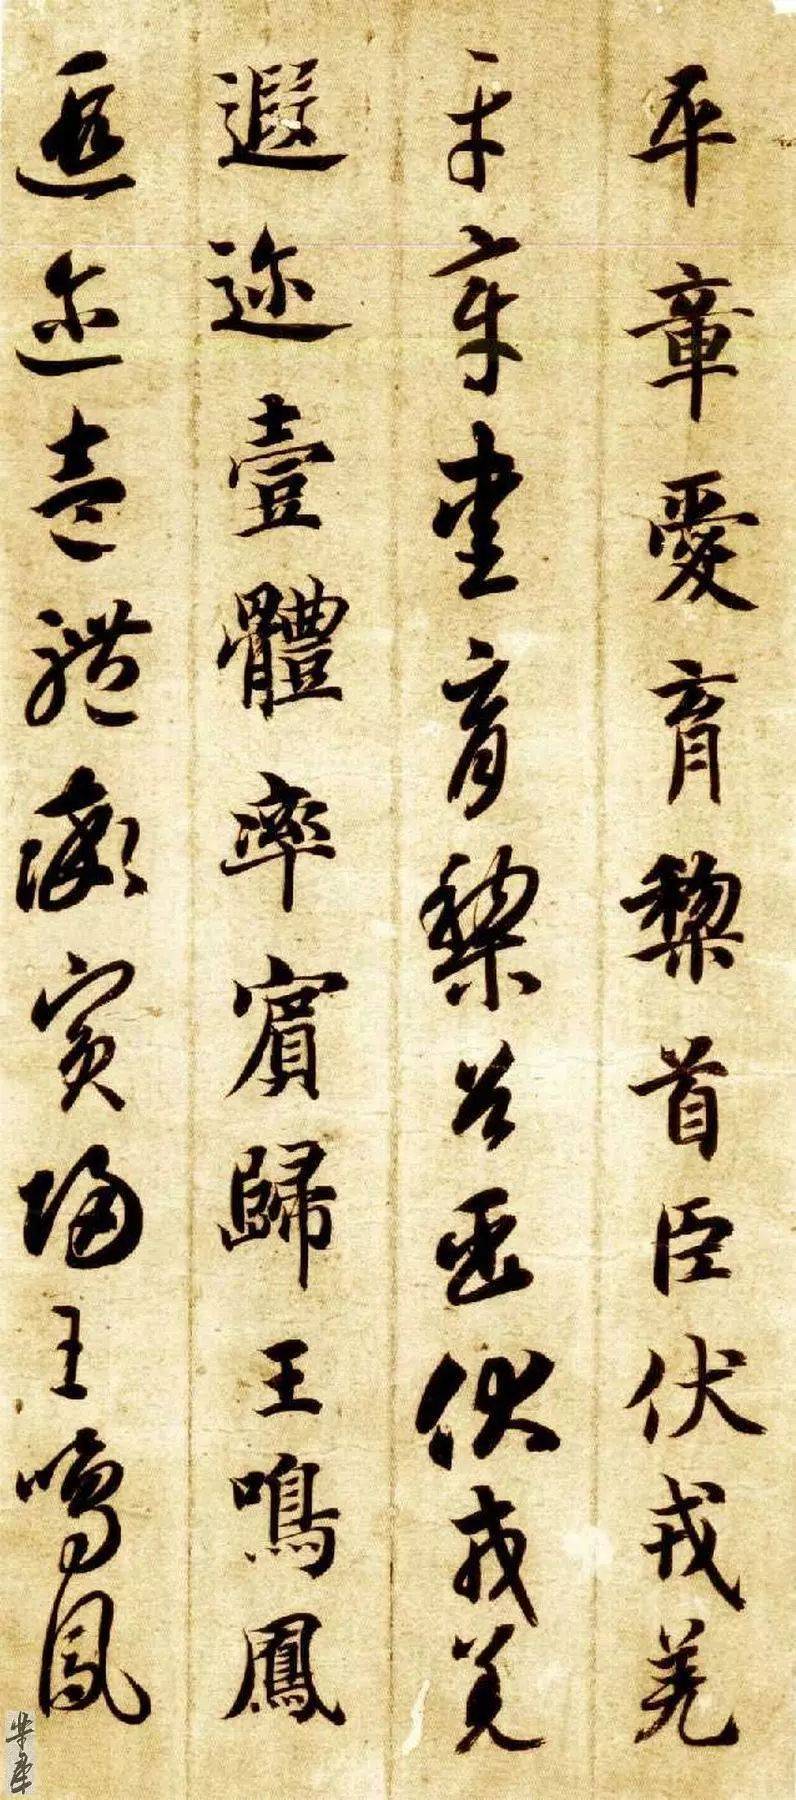 平章愛育黎首臣伏戎羌
平章愛育黎首臣伏戎羌
遐迩壹體率賓歸王鳴鳳
遐迩壹體率賓歸王鳴鳳